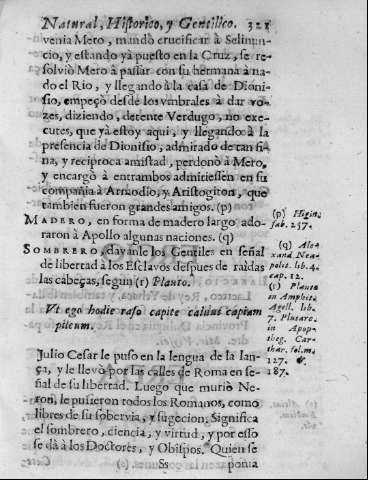 Natural, Historico, y Gentilico. 321
venia Mero, mandò crucificar à Selinun-
cio, y estando yà puesto en la Cruz, se re-
solviò Mero à passar con su hermana à na-
do el Rio, y llegando à la casa de Dioni-
sio, empeçò desde los vmbrales à dar vo-
zes, diziendo, detente Verdugo, no exe-
cutes, que yà estoy aqui, y llegando à la
presencia de Dionisio, admirado de tan fi-
na, y reciproca amistad, perdonò à Mero,
y encargò à entrambos admitiessen en su
compañia à Armodio, y Aristogiton, que
tambien fueron grandes amigos. (p)
MADERO, en forma de madero largo ado-
raron à Apollo algunas naciones. (q)
SOMBRERO, davanle los Gentiles en señal
de libertad à los Esclavos despues de raìdas
las cabeças, segun (r) Plauto.
Vt ego hodie raso capite calvus capiam
pileum.
Julio Cesar le puso en la lengua de la lan-
ça, y le llevò por las calles de Roma en se-
ñal de su libertad. Luego que muriò Ne-
ron, le pusieron todos los Romanos, como
libres de su sobervia, y sugecion. Significa
el sombrero, ciencia, y virtud, y por esso
se dà à los Doctores, y Obispos. Quien se
Ss ponia
(p) Higin.
fab. 257.
(q) Alex
xand. Nea-
polit. lib. 4.
cap. 12.
(r) Plauto
in Amphit.
Agell. lib.
7. Plutarc.
in Apop-
theg. Car-
thar. fol. m.
127. &
187.